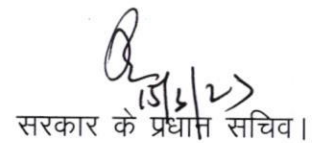 15/3/27
सरकार के प्रधान सचिव।